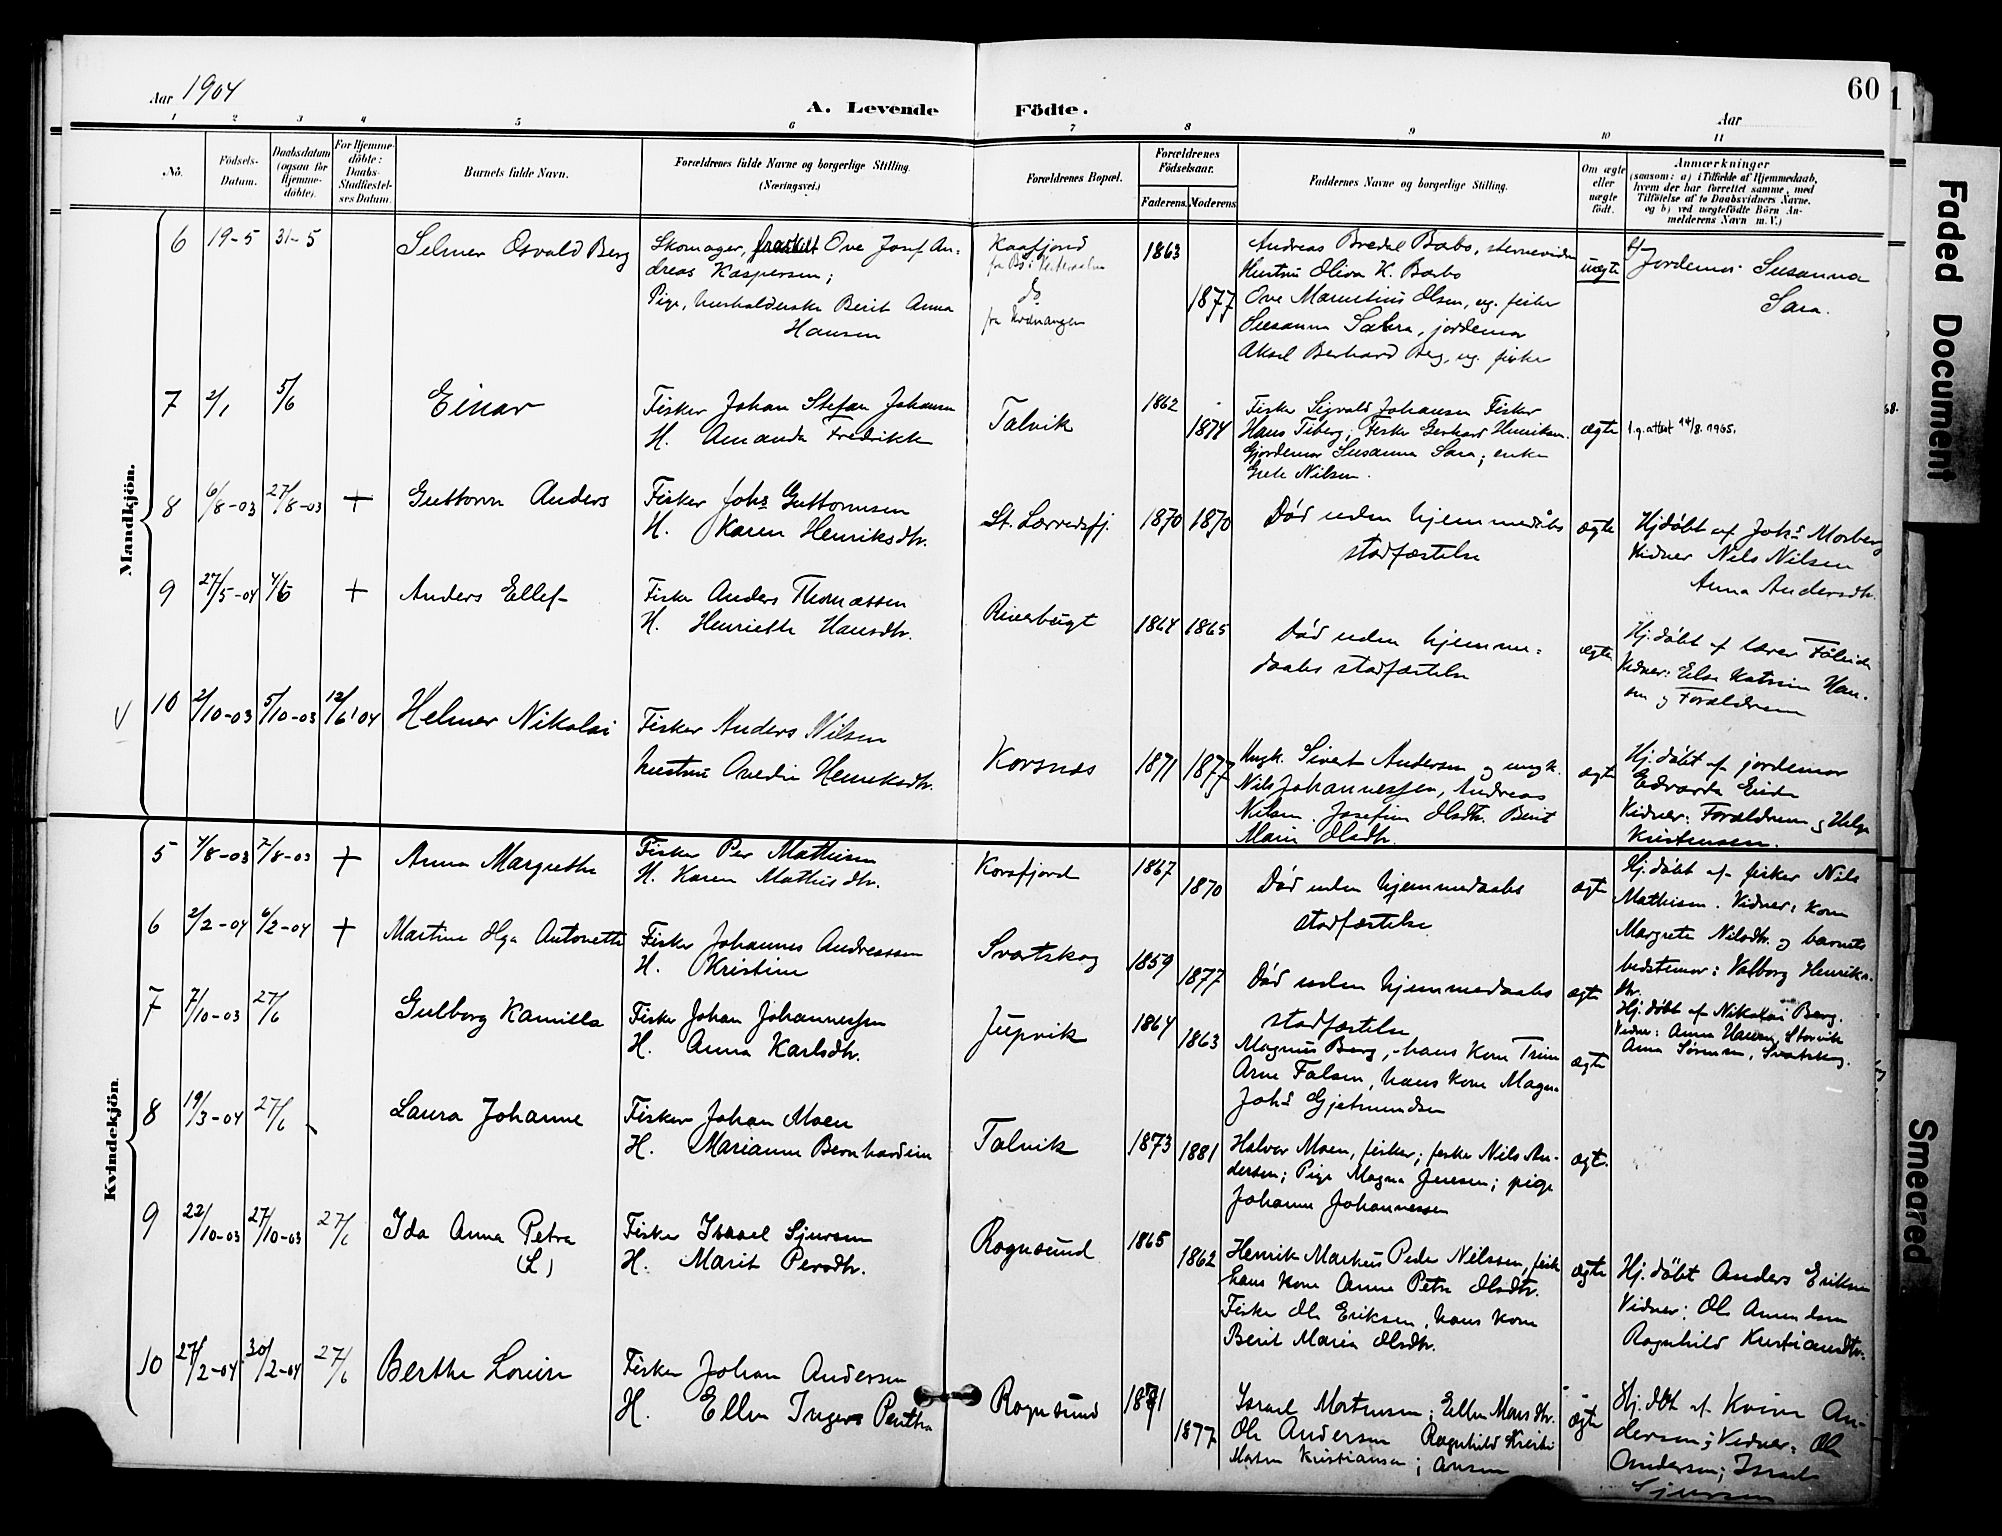 Aar 1904
A. Levende Födte.
Aar
60
1 2 3 4 5 6 7 8 9 10 11
No.
Födsels-
Datum.
Daabsdatum
(ogsaa for
Hjemme-
döbte).
For Hjemme-
döbte:
Daabs-
Stadfæstel-
ses Datum.
Barnets fulde Navn.
Forældrenes fulde Navne og borgerlige Stilling.
(Næringsvei.)
Forældrenes Bopæl.
Forældrenes
Födselsaar.
Faderens. Moderens.
Faddernes Navne og borgerlige Stilling.
Om ægte
eller
uægte
födt.
Anmærkninger
(saasom: a) i Tilfælde af Hjemmedaab,
hvem der har forrettet samme, med
Tilföielse af to Daabsvidners Navne,
og b) ved uægtefödte Börn An-
melderens Navn m. V.)
Mandkjön.
6 19-5 31-5 Selmer Osvald Berg
Skomager, fraskilt Ove Josef An-
dreas Kaspersen;
Pige, husholderske Berit Anna
Hansen
Kaafjord
do
fra Kvænangen
1863
1877
Andreas Bredal Barbo,
Hustru Oliva K. Barbo
Ove Mauritius Olsen, ug. fisker
Susanna Sara, jordemor
Aksel Berhard Berg, ug. fisker
uægte
b/ Jordemor Susanna
Sara.
7 2/1 5/6 Einar
Fisker Johan Stefan Johansen
H. Amanda Fredrikke
Talvik
1862
1874
Fisker Sigvald Johansen Fisker
Hans Tiberg; Fisker Gerhard Henriksen.
Gjordemor Susanna Sara; enke
Grete Nilsen.
ægte
l.g. attest 14/8.1965.
8 6/8-03 27/8-03 + Guttorm Anders
Fisker Johs Guttormsen
H. Karen Henriksdtr.
St. Lærredsfj.
1870 1870
Död uden hjemmedåbs
stadfæstelse
ægte
Hjdöbt af Johs Mosberg
Vidner Nils Nilsen
Anna Andersdtr.
9 27/5-04 4/6 + Anders Ellef
Fisker Anders Thomassen
H. Henriette Hansdtr.
Riverbugt
1864 1865
Död uden hjemme-
daabs stadfæstelse
ægte
Hj. döbt af lærer
Vidner: Else Katrine Han-
sen og Forældrene
10 2/10-03 5/10-03 12/6 04 Helmer Nikolai
Fisker Anders Nilsen
hustru Ovedie Henriksdtr.
Korsnes
1871 1877
Ungk. Sivert Andersen og ungk.
Nils Johannessen, Andreas
Nilsen. Josefine Olsdtr. Berit
Marie Olsdtr.
ægte
Hj. döbt af jordemor
Edvarda
Vidner: Forældrene og Helga
Kristensen.
Kvindekjön.
5 4/8-03 7/8-03 + Anna Margrethe
Fisker Per Mathisen
H. Karen Mathisdtr.
Korsfjord
1867
1870
Död uden hjemmedaabs
stadfæstelse
ægte
Hj. döbt af fisker Nils
Mathisen. Vidner: kone
Margrete Nilsdtr. og barnets
bedstemor: Valborg Henriks-
dtr.
6 2/2-04 6/2-04 + Martine Olga Antonette
Fisker Johannes Andreassen
H. Kristine
Svartskog
1859
1877
Död uden hjemmedaabs
stadfæstelse
ægte
Hj. döbt af Nikolai Berg.
Vidner: Anna Hansen, Storvik
Anna Sörensen, Svartskog.
7 7/10-03 27/6 Gulborg Kamilla
Fisker Johan Johannessen
H. Anna Karlsdtr.
Jupvik
1864
1863
Magnus Berg, hans kone Trine
Arne Falsen, hans kone Magna
Johs Gjetmundsen
ægte
8 19/3-04 27/6 Laura Johanne
Fisker Johan Moen
H. Marianne Bernhardine
Talvik
1873
1881
Halvor Moen, fisker; fisker Nils An-
dersen; Pige Magna Jensen; pige
Johanne Johannessen
ægte.
9 22/10-03 27/10-03 27/6 Ida Anna Petra
(L)
Fisker Israel Sjursen
H. Marit Persdtr.
Rognsund
1865
1862
Henrik Markus Peder Nilssen, fisk
hans kone Anne Petra Olsdtr.
Fisker Ole Eriksen, hans kone
Berit Maria Olsdtr.
ægte
Hj. döbt Anders Eriksen
Vidner: Ole Amundsen
Ragnhild Kristiansdtr.
10 27/2-04 30/2-04 27/6 Berthe Lovise
Fisker Johan Andersen
H. Ellen Inger
Rognsund
1871
1877
Israel Mortensen; Ellen Monsdtr.
Ole Andersen Ragnhild Kristi-
Morten Kristiansen; ansen
ægte
Hj. dbt af Kvine An-
dersen; Vidner: Ole
Andersen; Israel
Sjursen
Faded Document
Smeared